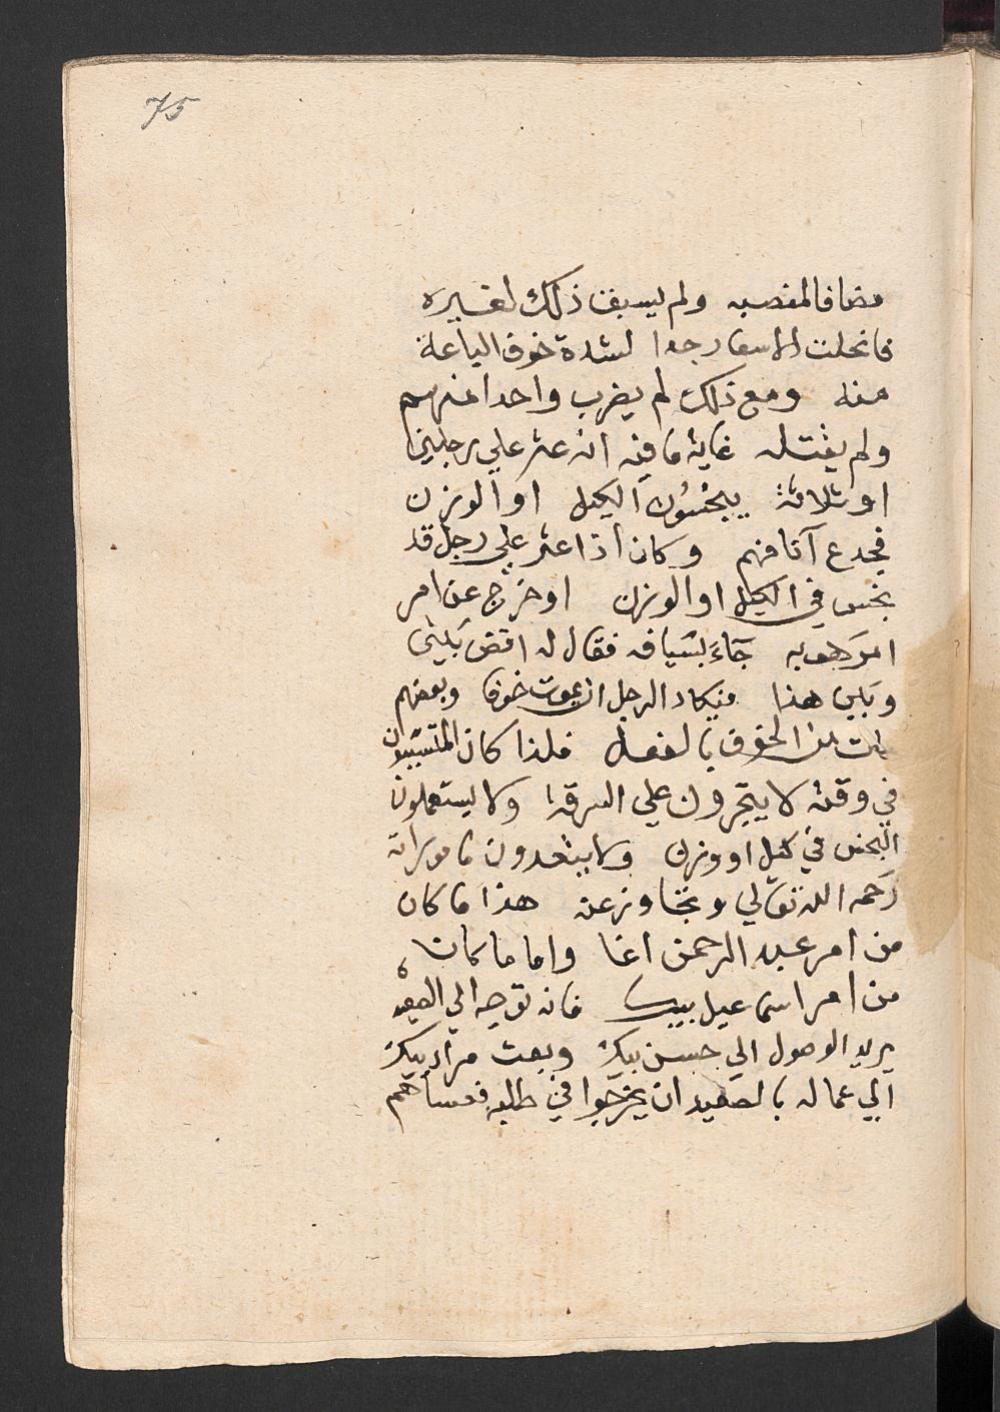 75
مضافا لمنصبه ولم يسبق ذلك لغيره
فانحلت الاسعار جدا لشدة خوف الباعة
منه ومع ذلك لم يضرب واحدا منهم
ولم يقتله غاية ما فيه انه عثر علي رجلين
او ثلاثة يبخسون الكيل او الوزن
فجدع آنافهم وكان اذا عثر علي رجل قد
بخس في الكيل او الوزن او خرج عن امر
امرهم به جآء بسيافه فقال له اقض بيني
وبين هذا فيكاد الرجل ان يموت خوفا وبعضهم
مات من الخوف بالفعل فلذا كان المتسببون
في وقته لا يتجرون علي السرقة ولا يستعملون
البخس في كيل او وزن ولا يتعدون ماموراته
رحمه الله تعالي وتجاوز عنه هذا ما كان
من امر عبد الرحمن اغا واما ما كان
من امر اسماعيل بيك فانه توجه الي الصعيد
يريد الوصول الي حسن بيك وبعث مراد بيك
الي عماله بالصعيد ان يخرجوا في طلبه